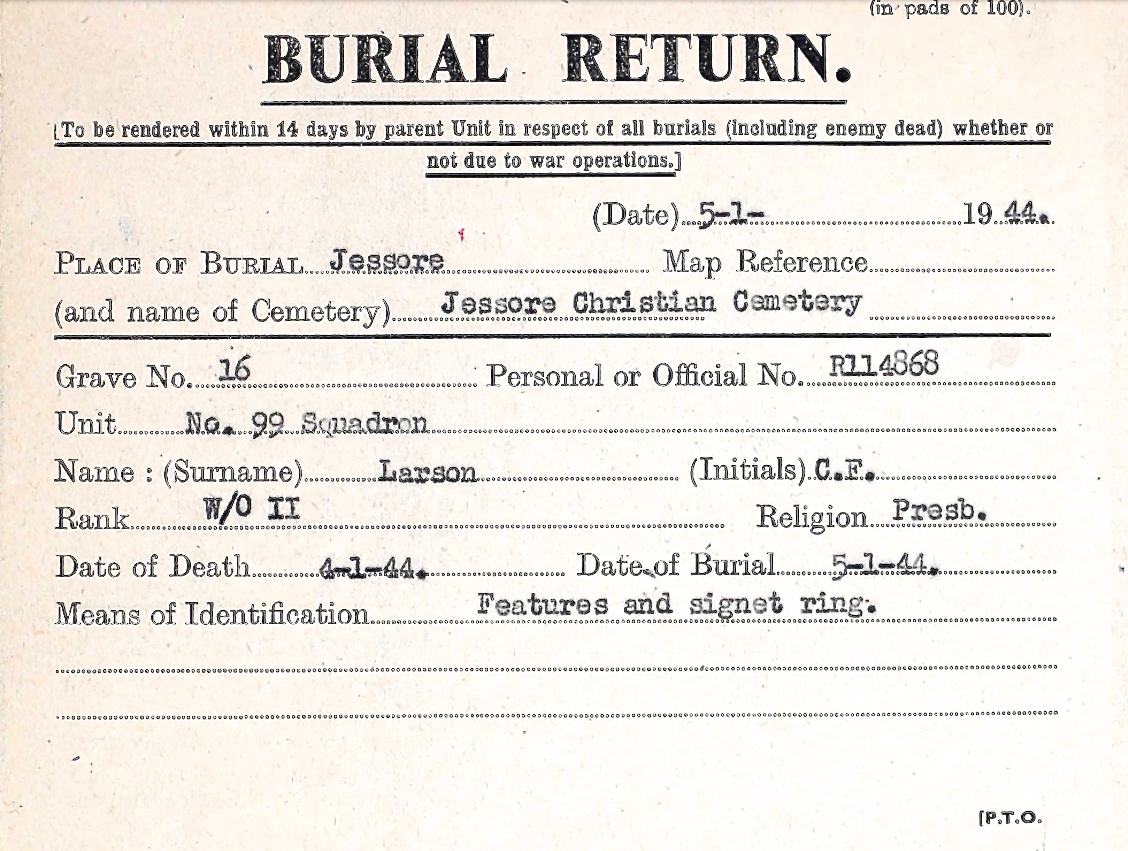 (in pads of 100).
BURIAL RETURN.
[To be rendered within 14 days by parent Unit in respect of all burials (including enemy dead) whether or
not due to war operations.]
(Date) 5-1- 19 44.
PLACE OF BURIAL Jessore Map Reference
(and name of Cemetery) Jessore Christian Cemetery
Grave No. 16 Personal or Official No. R114868
Unit No. 99 Squadron
Name : (Surname) Larson (Initials) C.F.
Rank W/O II Religion Presb.
Date of Death 4-1-44. Date of Burial 5-1-44.
Means of Identification Features and signet ring.
[P.T.O.